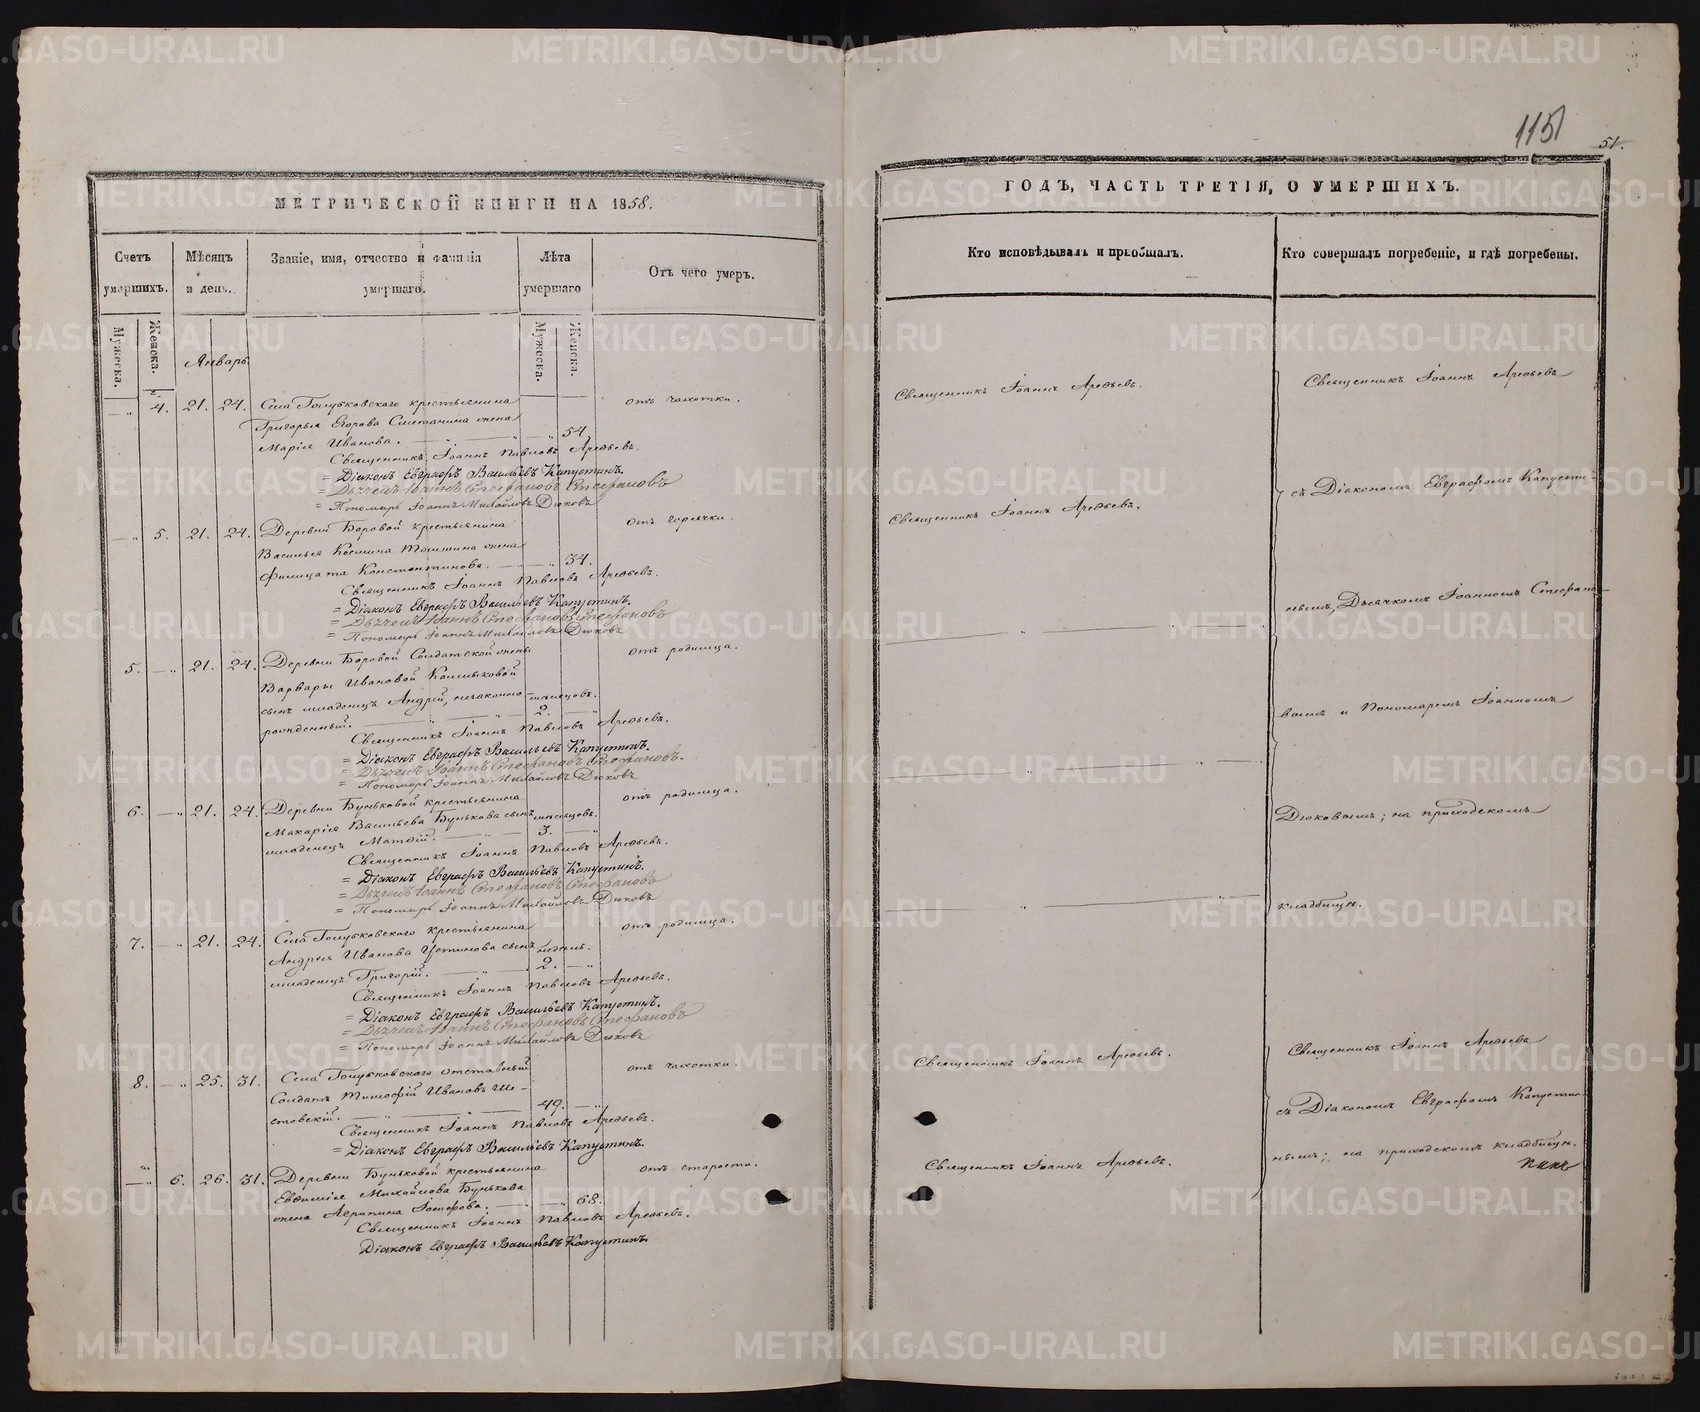 115
51.
МЕТРИЧЕСКОЙ КНИГИ НА 1858.
ГОДЪ, ЧАСТЬ ТРЕТІЯ, О УМЕРШИХЪ.
Счетъ умершихъ.
Мѣсяцъ и день.
Званіе, имя, отчество и фамилія умершаго.
Лѣта умершаго
Отъ чего умеръ.
Кто исповѣдывалъ и пріобщалъ.
Кто совершалъ погребеніе, и гдѣ погребены.
Мужеска.
Женска.
Мужеска.
Женска.
Январь
4. 21. 24. Села Голубковскаго крестьянина отъ чахотки.
Григорья Егорова Сметанина жена
Марія Иванова. 54.
Священникъ Іоаннъ Павловъ Арефьевъ.
= Діаконъ Евграфъ Васильевъ Капустинъ.
= Дьячекъ Іоаннъ Стефановъ Стефановъ
= Пономарь Іоаннъ Михайловъ Дюковъ
5. 21. 24. Деревни Боровой крестьянина отъ горячки.
Василья Космина жена
Филицата Константинова. 34.
Священникъ Іоаннъ Павловъ Арефьевъ.
= Діаконъ Евграфъ Васильевъ Капустинъ.
= Дьячекъ Іоаннъ Стефановъ Стефановъ
= Пономарь Іоаннъ Михайловъ Дюковъ
5. 21. 24. Деревни Боровой Солдатской жены отъ родимца.
Варвары Ивановой
сынъ младенецъ Андрій, незаконно- мѣсяцовъ.
рожденный. 2.
Священникъ Іоаннъ Павловъ Арефьевъ.
= Діаконъ Евграфъ Васильевъ Капустинъ.
= Дьячекъ Іоаннъ Стефановъ Стефановъ.
= Пономарь Іоаннъ Михайловъ Дюковъ
6. 21. 24. Деревни Буньковой крестьянина отъ родимца.
Макарія Васильева Бунькова сынъ мѣсяцовъ.
младенецъ Матѳій. 3.
Священникъ Іоаннъ Павловъ Арефьевъ.
= Діаконъ Евграфъ Васильевъ Капустинъ.
= Дьячекъ Іоаннъ Стефановъ Стефановъ
= Пономарь Іоаннъ Михайловъ Дюковъ
7. 21. 24. Села Голубковскаго крестьянина отъ родимца.
Андрея Иванова Устинова сынъ недель.
младенецъ Григорій. 2.
Священникъ Іоаннъ Павловъ Арефьевъ.
= Діаконъ Евграфъ Васильевъ Капустинъ.
= Дьячекъ Іоаннъ Стефановъ Стефановъ
= Пономарь Іоаннъ Михайловъ Дюковъ
8. 25. 31. Села Голубковскаго отставный отъ чахотки.
Солдатъ Тимофій Ивановъ Ше-
стовскій. 49.
Священникъ Іоаннъ Павловъ Арефьевъ.
= Діаконъ Евграфъ Васильевъ Капустинъ.
6. 26. 31. Деревни Буньковой крестьянина отъ старости.
Евфимія Михайлова Бунькова
жена Агрипина Іосифова. 68.
Священникъ Іоаннъ Павловъ Арефьевъ.
Діаконъ Евграфъ Васильевъ Капустинъ.
Священникъ Іоаннъ Арефьевъ.
Священникъ Іоаннъ Арефьевъ.
Священникъ Іоаннъ Арефьевъ.
Священникъ Іоаннъ Арефьевъ.
Священникъ Іоаннъ Арефьевъ
съ Діакономъ Евграфомъ Капусти-
нымъ, Дьячкомъ Іоанномъ Стефано-
вымъ и Пономаремъ Іоанномъ
Дюковымъ; на приходскомъ
кладбищѣ.
Священникъ Іоаннъ Арефьевъ
съ Діакономъ Евграфомъ Капусти-
нымъ; на приходскомъ кладбищѣ.
METRIKI.GASO-URAL.RU